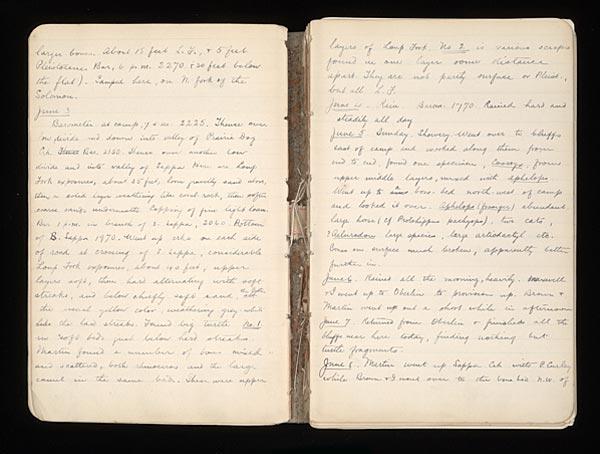 larger bones. About 15 feet L.F., & 5 feet
Pleistocene. Bar, 6 p.m. 2270 (20 feet below
the flat). Camped here, on N. fork of the
Solomon.
June 3
Barometer at camp, 7 a.m. 2225. Thence over
divide and down into valley of Prairie Dog
Crk. Bar. 2150. Thence over another low
divide and into valley of Sappa. Here are Loup
Fork exposures, about 25 feet, loose gravelly sand above,
then a solid layer weathering like coral rock, then softer
coarse sands underneath. Capping of fine light loam.
Bar. 1 p.m. in branch of S. Sappa, 2060. Bottom
of S. Sappa 1970. Went up crks on each side
of road at crossing of S. Sappa, considerable
Loup Fork exposures, about 40 feet, upper
layers soft, then hard alternating with soft
streaks, and below chiefly soft sand, all
the usual yellow color, weathering grey white
like the bad streaks. Found big turtle No. 1
in soft bed just below hard streaks.
Martin found a number of bones mixed
and scattered, both rhinoceros and the large
camel in the same bed. These were upper
layers of Loup Fork. No. 2 is various scraps
found in one layer some distance
apart. They are not partly surface or Pleist.,
but all L.F.
June 4. Rain. Barom. 1970. Rained hard and
steadily all day
June 5 Sunday. Showery. Went over to bluffs
east of camp and worked along them from
end to end, found one specimen, from
upper middle layers, mixed with Aphelops.
Went up to bone bed north-west of camp
and looked it over. Aphelops abundant,
large horse (cf Protohippus pachyops), two cats,
? Aelurodon large species, large artiodactyl etc.
Bones on surface much broken, apparently better
further in.
June 6. Rained all the morning, heavily. Maxwell
& I went up to Oberlin to provision up. Brown &
Martin went up and a shoot while in afternoon
June 7. Returned from Oberlin & finished all the
bluffs near here today, finding nothing but
turtle fragments.
June 8. Martin went up Sappa Crk with P. Curley
while Brown & I went over to the bone bed N.W. of